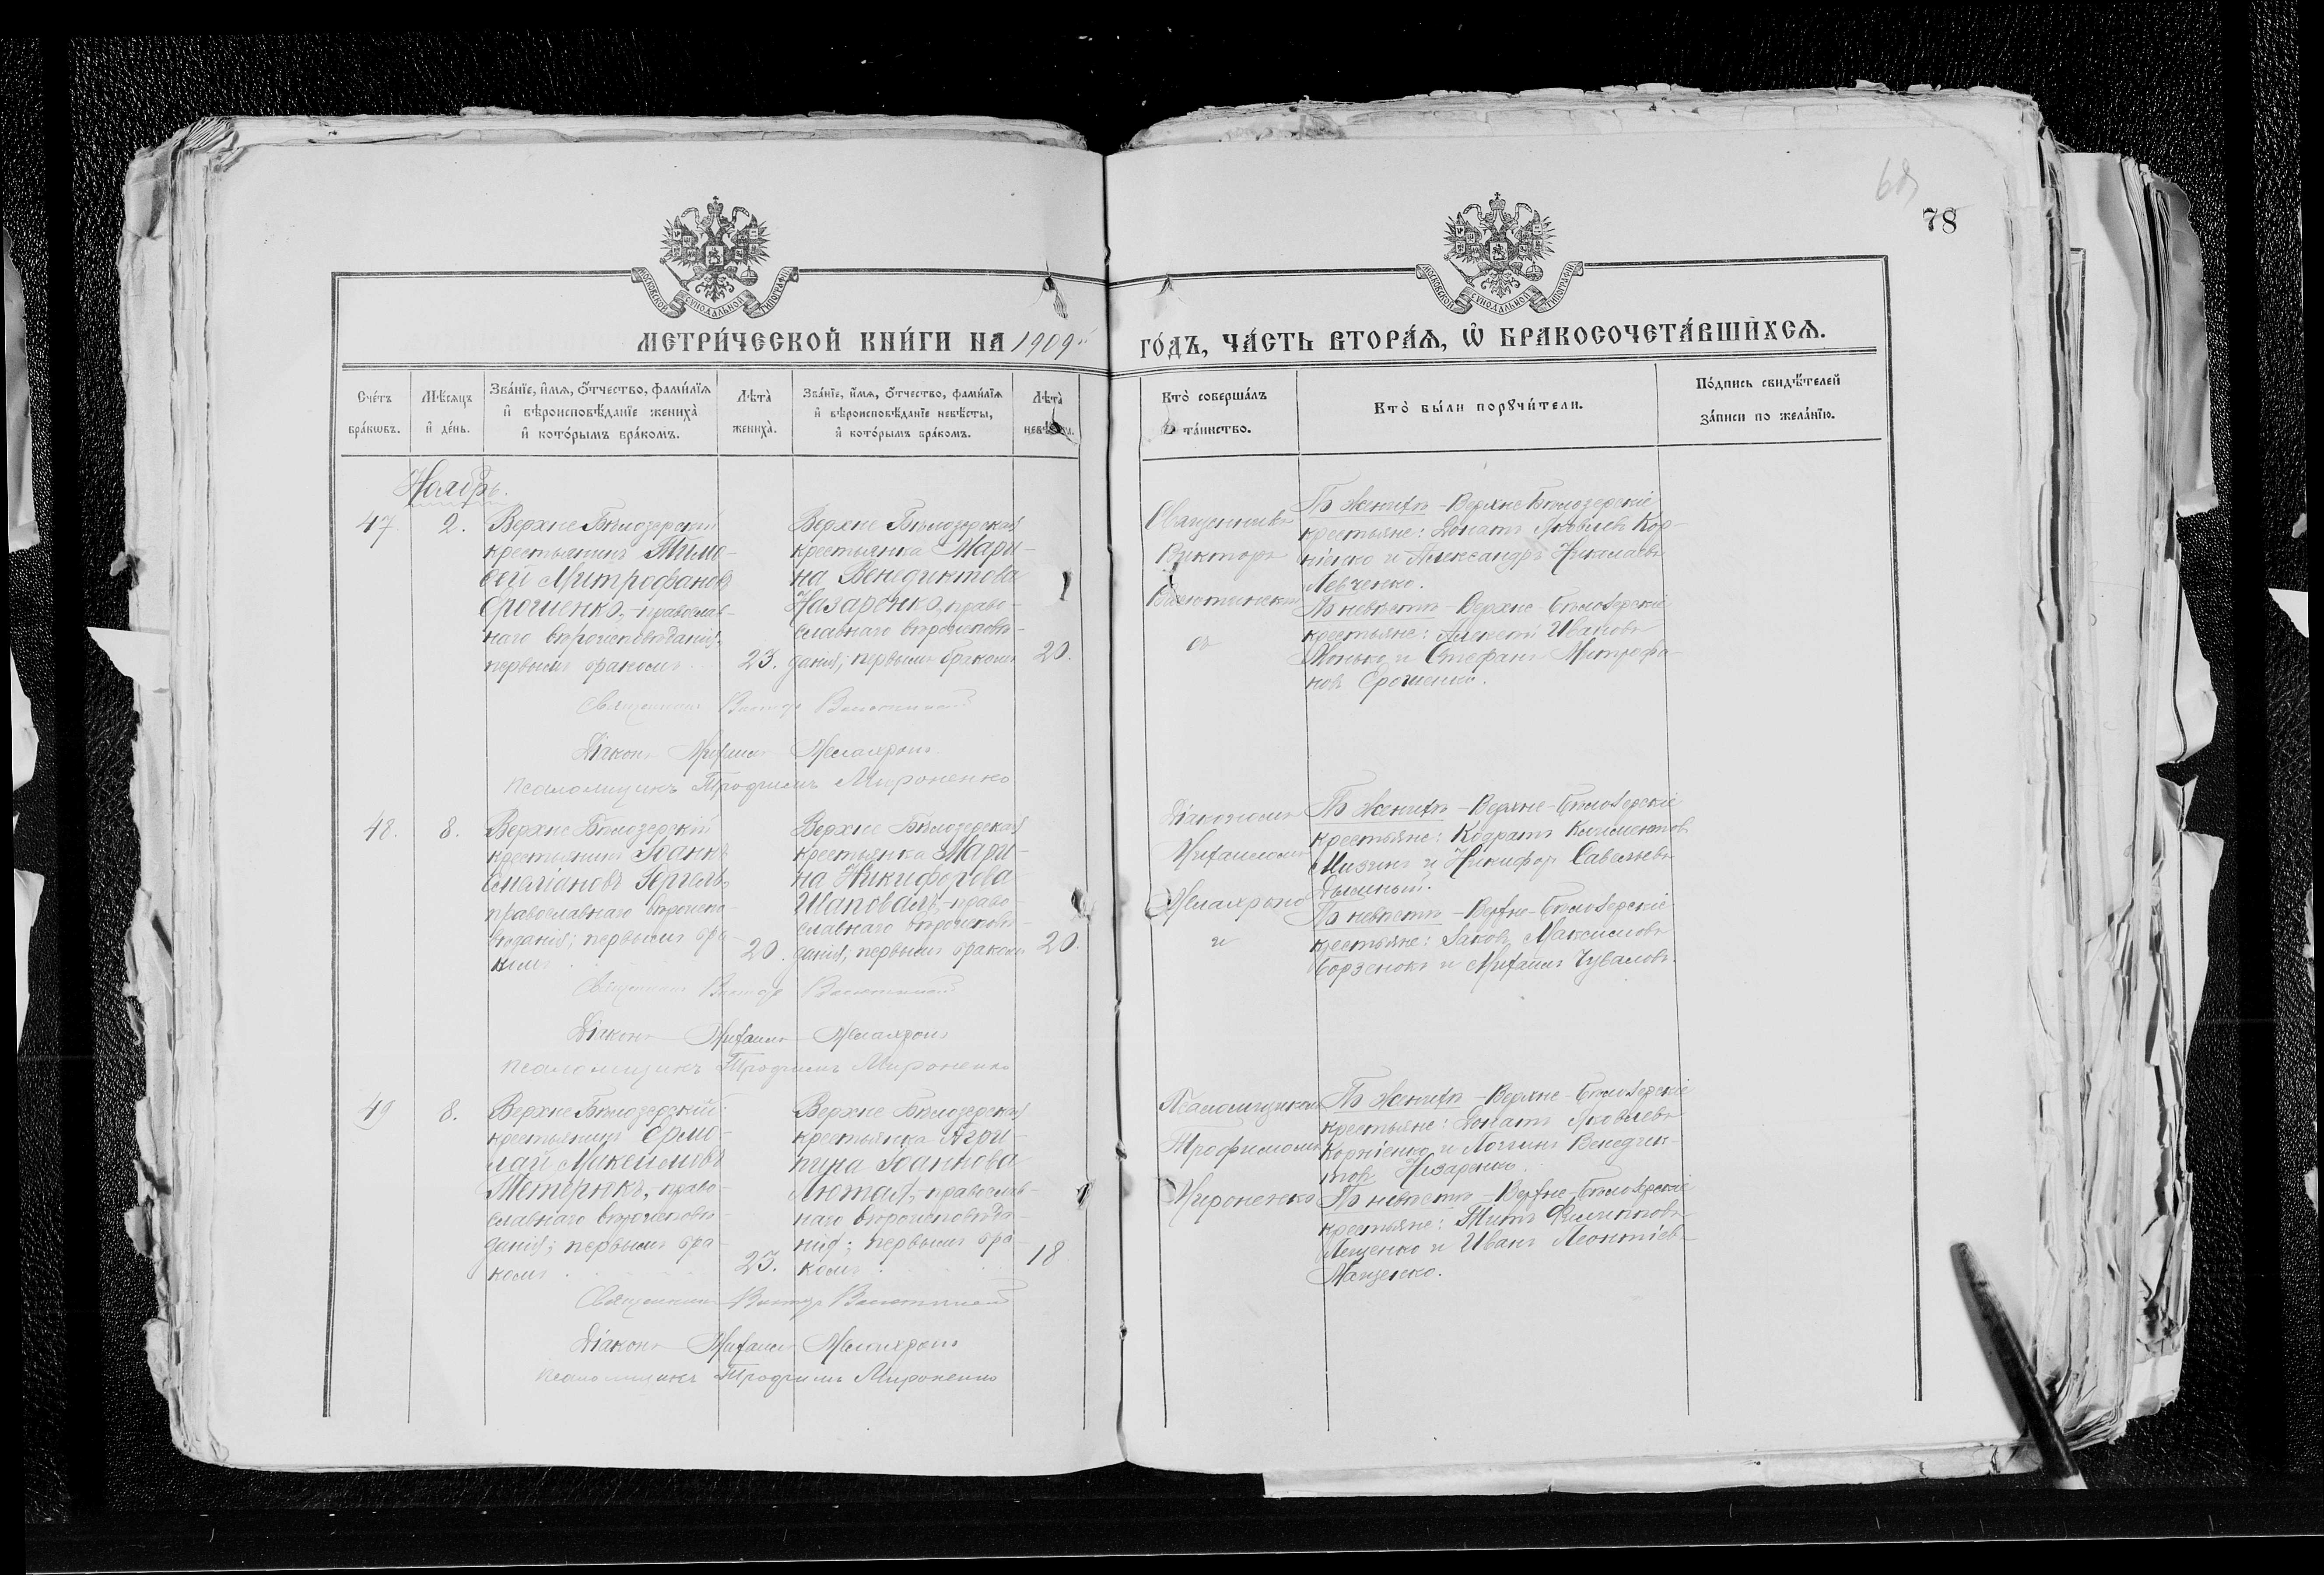 68
78
МОСКОВСКОЙ СѴНОДАЛЬНОЙ ТИПОГРАФІИ
МОСКОВСКОЙ СѴНОДАЛЬНОЙ ТИПОГРАФІИ
МЕТРИ́ЧЕСКОЙ КНИ́ГИ НА 1909й ГО́ДЪ, ЧА́СТЬ ВТОРА́Ѧ, Ѽ БРАКОСОЧЕТА́ВШИХСѦ.
Сче́тъ
бра́кѡвъ.
Мѣ́сѧцъ
и҆ де́нь.
Зва́нїе, и҆́мѧ, ѻ҆́тчество, фами́лїѧ
и҆ вѣроисповѣ́данїе жениха̀
и҆ кото́рымъ бра́комъ.
Лѣ́та̀
жениха̀.
Зва́нїе, и҆́мѧ, ѻ҆́тчество, фами́лїѧ
и҆ вѣроисповѣ́данїе невѣ́сты,
и҆ кото́рымъ бра́комъ.
Лѣ́та̀
невѣ́сты.
Кто̀ соверша́лъ
та́инство.
Кто̀ бы́ли порꙋчи́тели.
По́дпись свидѣ́телей
за́писи по жела́нїю.
Ноябрь.
47.
2.
Верхне Бѣлозерскій
крестьянинъ Тимо-
ѳей Митрофановъ
Ерошенко, православ-
наго вѣроисповѣданія;
первымъ бракомъ.
23.
Верхне Бѣлозерская
крестьянка Мари-
на Венедиктова
Назаренко, право-
славнаго вѣроисповѣ-
данія; первымъ бракомъ
20.
Священникъ
Викторъ
съ
По женихѣ - Верхне Бѣлозерскіе
крестьяне: Донатъ Яковлевъ Кор-
ніенко и Александръ Николаевъ
Левченко.
По невѣстѣ - Верхне - Бѣлозерскіе
крестьяне: Алексѣй Ивановъ
и Стефанъ Митрофа-
новъ Ерошенко.
Священникъ Викторъ
Діаконъ Михаилъ
Псаломщикъ Трофимъ Мироненко
48.
8.
Верхне Бѣлозерскій
крестьянинъ Іоаннъ
Емеліановъ
православнаго вѣроиспо-
вѣданія; первымъ бра-
комъ
20.
Верхне Бѣлозерская
крестьянка Мари-
на Никифорова
Шаповалъ, право-
славнаго вѣроисповѣ-
данія; первымъ бракомъ
20.
Діакономъ
Михаиломъ
и
По женихѣ - Верхне - Бѣлозерскіе
крестьяне: Кодратъ Климентовъ
и Никифоръ Савельевъ
По невѣстѣ - Верхне - Бѣлозерскіе
крестьяне: Іаковъ Максимовъ
Борзенокъ и Михаилъ Чуваловъ.
Священникъ Викторъ
Діаконъ Михаилъ
Псаломщикъ Трофимъ Мироненко
49
8.
Верхне Бѣлозерскій
крестьянинъ Ермо-
лай Максимовъ
Тетерюкъ, право-
славнаго вѣроисповѣ-
данія; первымъ бра-
комъ
23.
Верхне Бѣлозерская
крестьянка Агри-
пина Іоаннова
Лютая, православ-
наго вѣроисповѣда-
нія; первымъ бра-
комъ
18
Псаломщикомъ
Трофимомъ
Мироненко
По женихѣ - Верхне - Бѣлозерскіе
крестьяне: Донатъ Яковлевъ
Корніенко и Логгинъ Венедик-
товъ Назаренко.
По невѣстѣ - Верхне - Бѣлозерскіе
крестьяне: Титъ Филипповъ
Лященко и Иванъ Леонтіевъ
Мащенко.
Священникъ Викторъ
Діаконъ Михаилъ
Псаломщикъ Трофимъ Мироненко